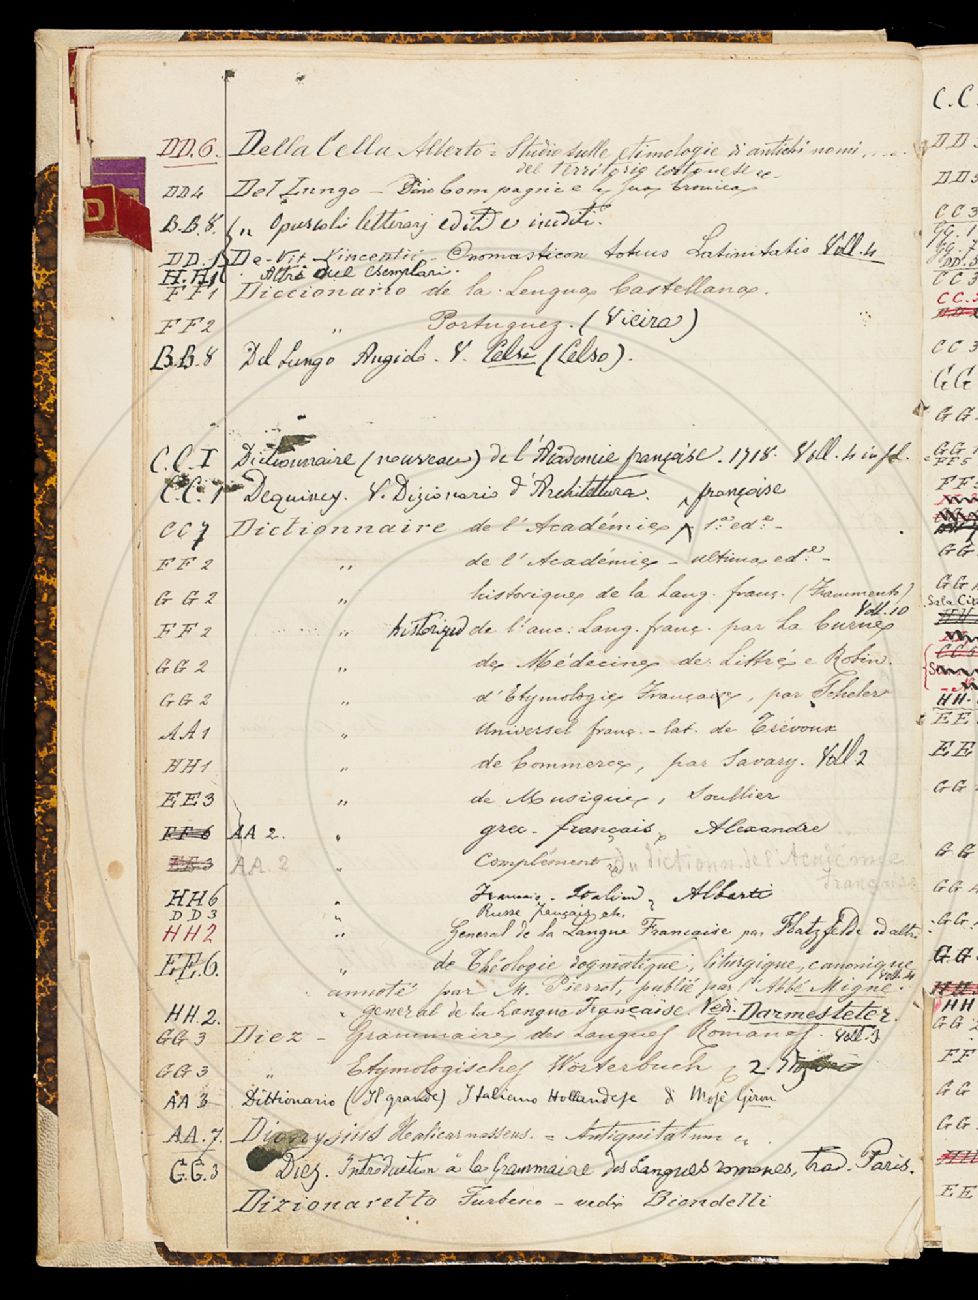 D
DD.6. Della Cella Alberto = Studio sulle etimologie di antichi nomi
del territorio cortonese ec
DD4 Del Lungo - Dino Compagni e la sua Cronica
B.B.8. „ Opuscoli letterarj editi e inediti.
DD.1 De-Vit - Vincentii - Onomasticon totius Latinitatis Voll. 4
H.H1 Altri due esemplari.
FF1 Diccionario de la Lengua Castellana.
FF2 „ Portuguez. (Vieira)
B.B.8 Del Lungo V. Celsi (Celso).
C.C.I Dictionnaire (nouveau) de l'Academie françoise. 1718. Voll. 4 in fol.
C.C.1 Dequincy. V. Dizionario d'Architettura. françoise
CC7 Dictionnaire de l'Académie 1ª. edne. -
FF2 „ de l'Académie - ultima edne. -
GG2 „ historique de la Lang. franç. (Frammento)
Voll. 10
FF2 „ historique de l'anc: Lang. franç. par La Curne
GG2 „ de Médecine de Littré e Robin.
GG2 „ d'Etymologie Française, par Scheler
AA1 „ Universel franç. - lat. de Trévoux
HH1 „ de Commerce, par Savary. Voll 2
EE3 „ de Musique, Soullier
FF6 AA 2. „ grec - français, Alexandre
EE3 AA. 2 „ Complément du dictionn. de l'Académie
Française
HH6 „ Italien, Alberti
DD3 „ Russe français etc.
HH2 „ General de la Langue Francaise par Hatzfeld ed altri
EE.6. „ de Théologie dogmatique, liturgique, canonique
Voll. 4
annoté par M. Pierrot, publié par l'Abbé Migne.
HH.2. „ general de la Langue Française. Vedi. Darmesteter.
GG3 Diez - Grammaire des Langues Romanes. Voll. 3
GG3 „ Etymologisches Wörterbuch 2.
AA3 Dittionario (Il grande) Italiano Hollandese di Mosè Giron
AA.7. Dionysius Halicarnasseus. = Antiquitatum
G.G.3 Diez. Introduction à la Grammaire des Langues romanes, trad. Paris.
Dizionaretto Furbesco - vedi Biondelli
C.C.
DD
DD
CC3
GG.1
GG.
DD.
CC3
CC.
CC3
GG
GG
GG1
FF5
FF
GG
GG
Sala
HH.
EE
EE
GG
GG
GG
GG.
G.G.
HH
GG
FF
GG
GG
EE